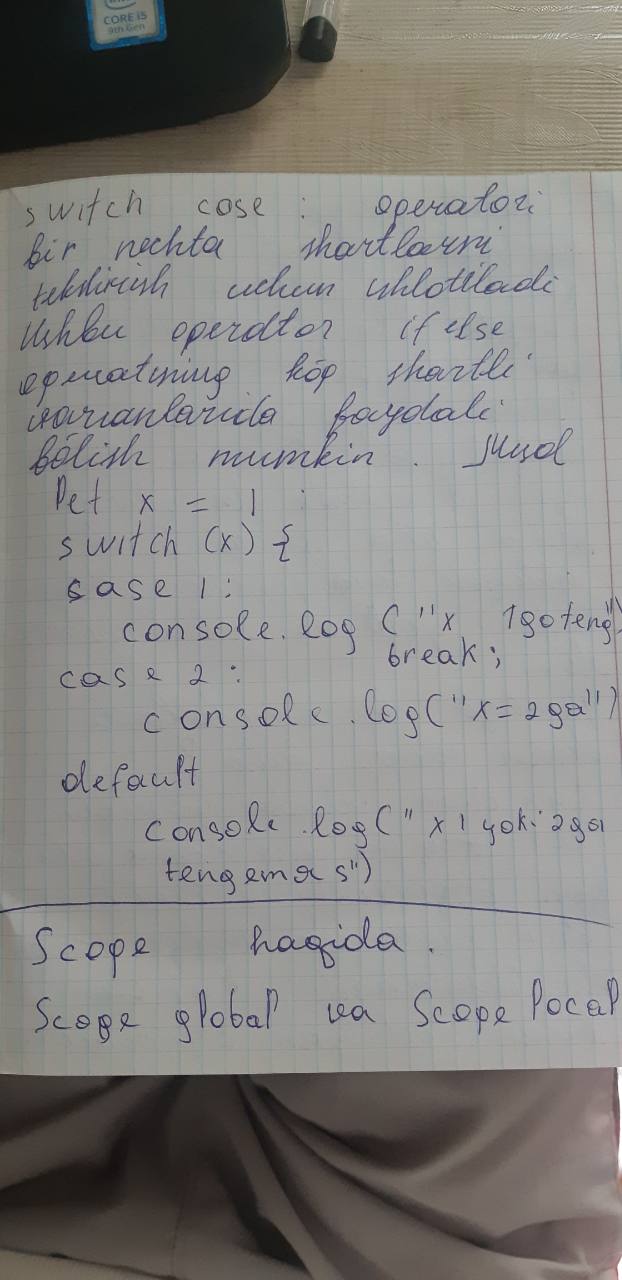 CORE i5
9th Gen
switch case : operatori
bir nechta shartlarni
tekshirish uchun ishlatiladi
Ushbu operator if else
operatining kóp shartli
variantlarida foydali
bólish mumkin . Misol
let x = 1
switch (x) {
case 1:
console.log ("x 1ga teng")
break;
case 2 :
console.log("x=2ga")
default
console.log(" x 1 yoki 2ga
teng emas")
Scope haqida .
Scope global va Scope local